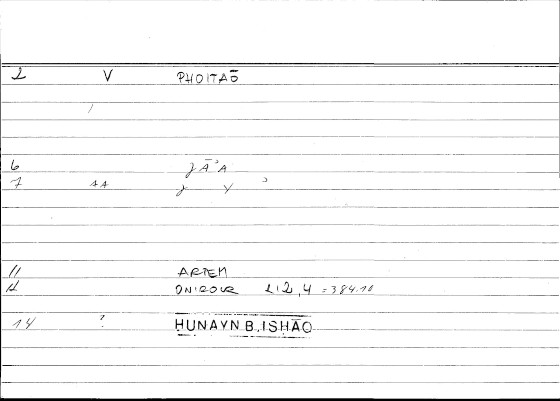 2 V PHOITAŌ
/
6 JĀʾA
7 AA J Y ʾ
11 ARTEM
12 ONIROCR I 2, 4 = 384.10
14 ? HUNAYN B. ISHĀQ